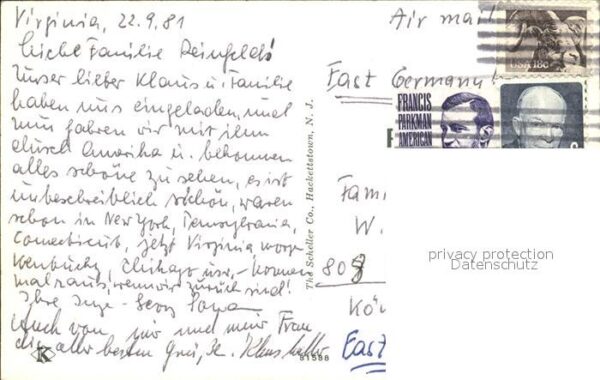 Virginia, 22.9.81
Liebe Familie
Unser lieber Klaus u. Familie
haben uns eingeladen, und
nun fahren wir mit ihm
durch Amerika u. bekommen
alles schöne zu sehen, es ist
unbeschreiblich schön, waren
schon in New York, Pennsylvania,
Connecticut, jetzt Virginia
Kentucky, Chikago usw. - kommen
mal raus, wenn wir zurück sind!
Ihre Inge - Georg
Auch von mir und meir Frau
die aller besten Klaus
The Scheller Co., Hackettstown, N. J.
Air mail
USA 18c
East Germany!
FRANCIS
PARKMAN
AMERICAN
Fam
W.
808
Kö
East
91588
K
privacy protection
Datenschutz